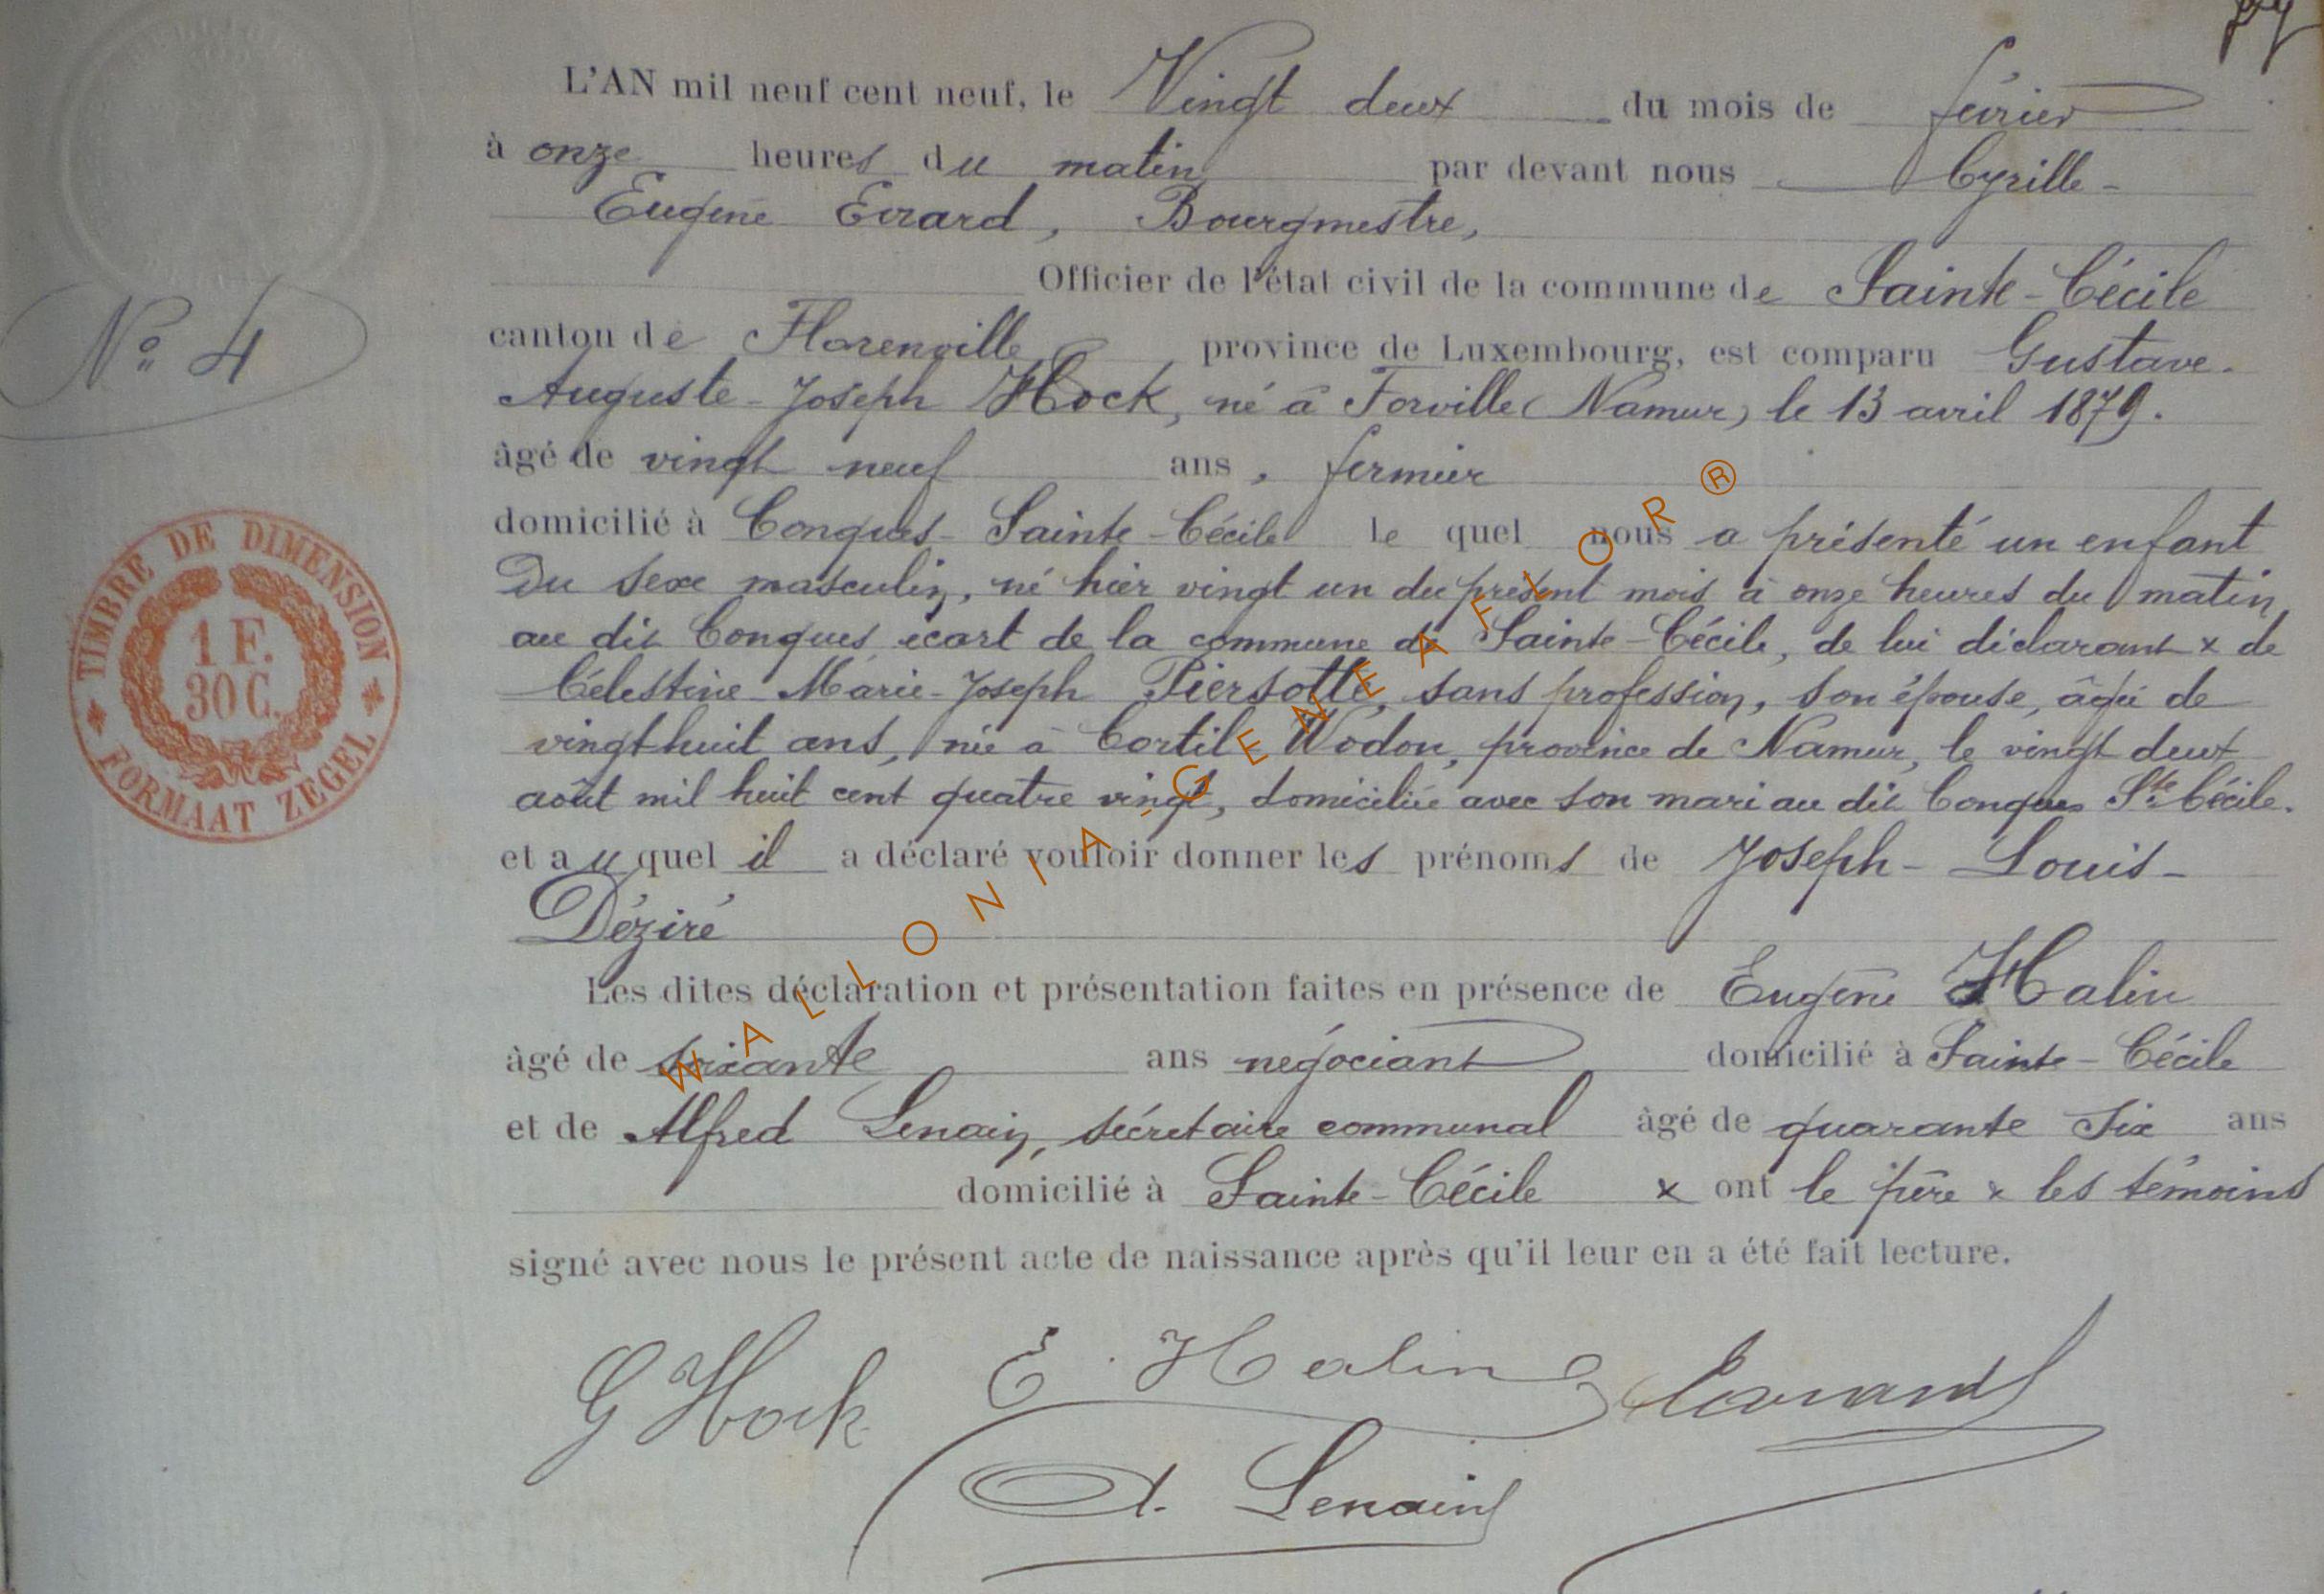 L'AN mil neuf cent neuf, le Vingt deux du mois de février
à onze heures du matin par devant nous Cyrille-
Eugène Evrard, Bourgmestre,
Officier de l'état civil de la commune de Sainte-Cécile
N° 4
canton de Florenville province de Luxembourg, est comparu Gustave-
Auguste-Joseph Hock, né à Forville (Namur) le 13 avril 1879.
âgé de vingt neuf ans, fermier
domicilié à Conques-Sainte-Cécile le quel nous a présenté un enfant
Du sexe masculin, né hier vingt un du présent mois à onze heures du matin
au dit Conques écart de la commune de Sainte-Cécile, de lui déclarant x de
Célestine-Marie-Joseph Piersotte, sans profession, son épouse, âgée de
vingt-huit ans, née à Cortil Wodon, province de Namur, le vingt deux
août mil huit cent quatre vingt, domiciliée avec son mari au dit Conques Ste Cécile.
et au quel il a déclaré vouloir donner les prénoms de Joseph-Louis-
Déziré
Les dites déclaration et présentation faites en présence de Eugène Halin
âgé de soixante ans négociant domicilié à Sainte-Cécile
et de Alfred Lenain, secrétaire communal âgé de quarante six ans
domicilié à Sainte-Cécile x ont le père x les témoins
signé avec nous le présent acte de naissance après qu'il leur en a été fait lecture.
G Hock E. Halin Evrard
A. Lenain
TIMBRE DE DIMENSION
1 F.
30 C.
FORMAAT ZEGEL
WALLONIA-GENEAFLOR®